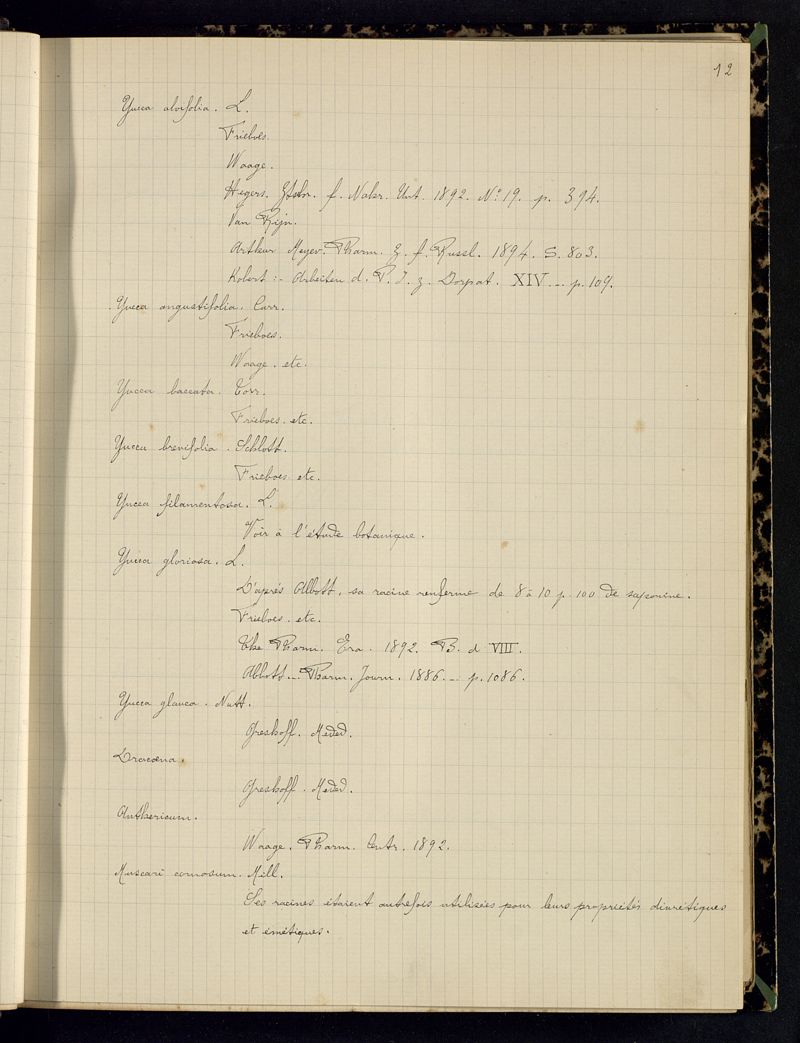 12
Yucca aloifolia. L.
Frieboes.
Waage.
Hegers. Ztschr. f. Nahr. Unt. 1892. No 19. p. 394.
Van Rijn.
Arthur Meyer. Pharm. Z. f. Russl. 1894. S. 803.
Kobert :- Arbeiten d. P. I. z. Dorpat. XIV._ p. 109.
Yucca angustifolia. Carr.
Frieboes.
Waage. etc.
Yucca baccata. Torr.
Frieboes. etc.
Yucca brevifolia. Schlott.
Frieboes etc.
Yucca filamentosa. L.
Voir à l'étude botanique.
Yucca gloriosa. L.
D'après Abbott, sa racine renferme de 8 à 10 p. 100 de saponine.
Frieboes. etc.
The Pharm. Era. 1892. B. d VIII.
Abbott._ Pharm. Journ. 1886._ p. 1086.
Yucca glauca. Nutt.
Greshoff. Meded.
Dracæna.
Greshoff. Meded.
Anthericum.
Waage. Pharm. Centr. 1892.
Muscari comosum. Mill.
Ses racines étaient autrefois utilisées pour leurs propriétés diurétiques
et émétiques.